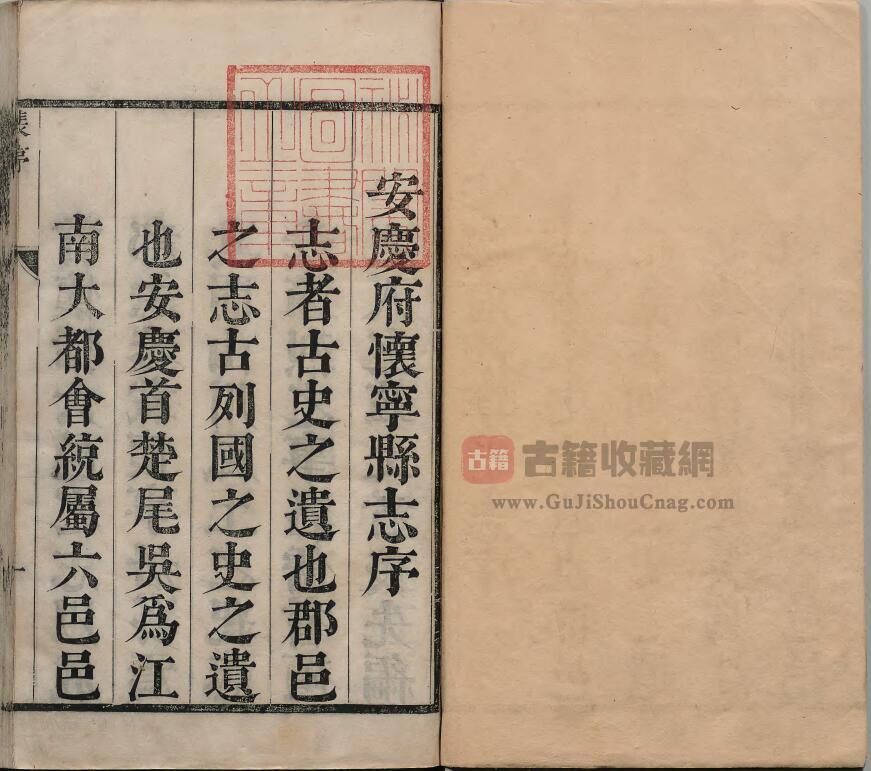 安慶府懷寧縣志序
志者古史之遺也郡邑
之志古列國之史之遺
也安慶首楚尾吳爲江
南大都會統屬六邑邑
一
古籍
古籍收藏網
www.GuJiShouCnag.com